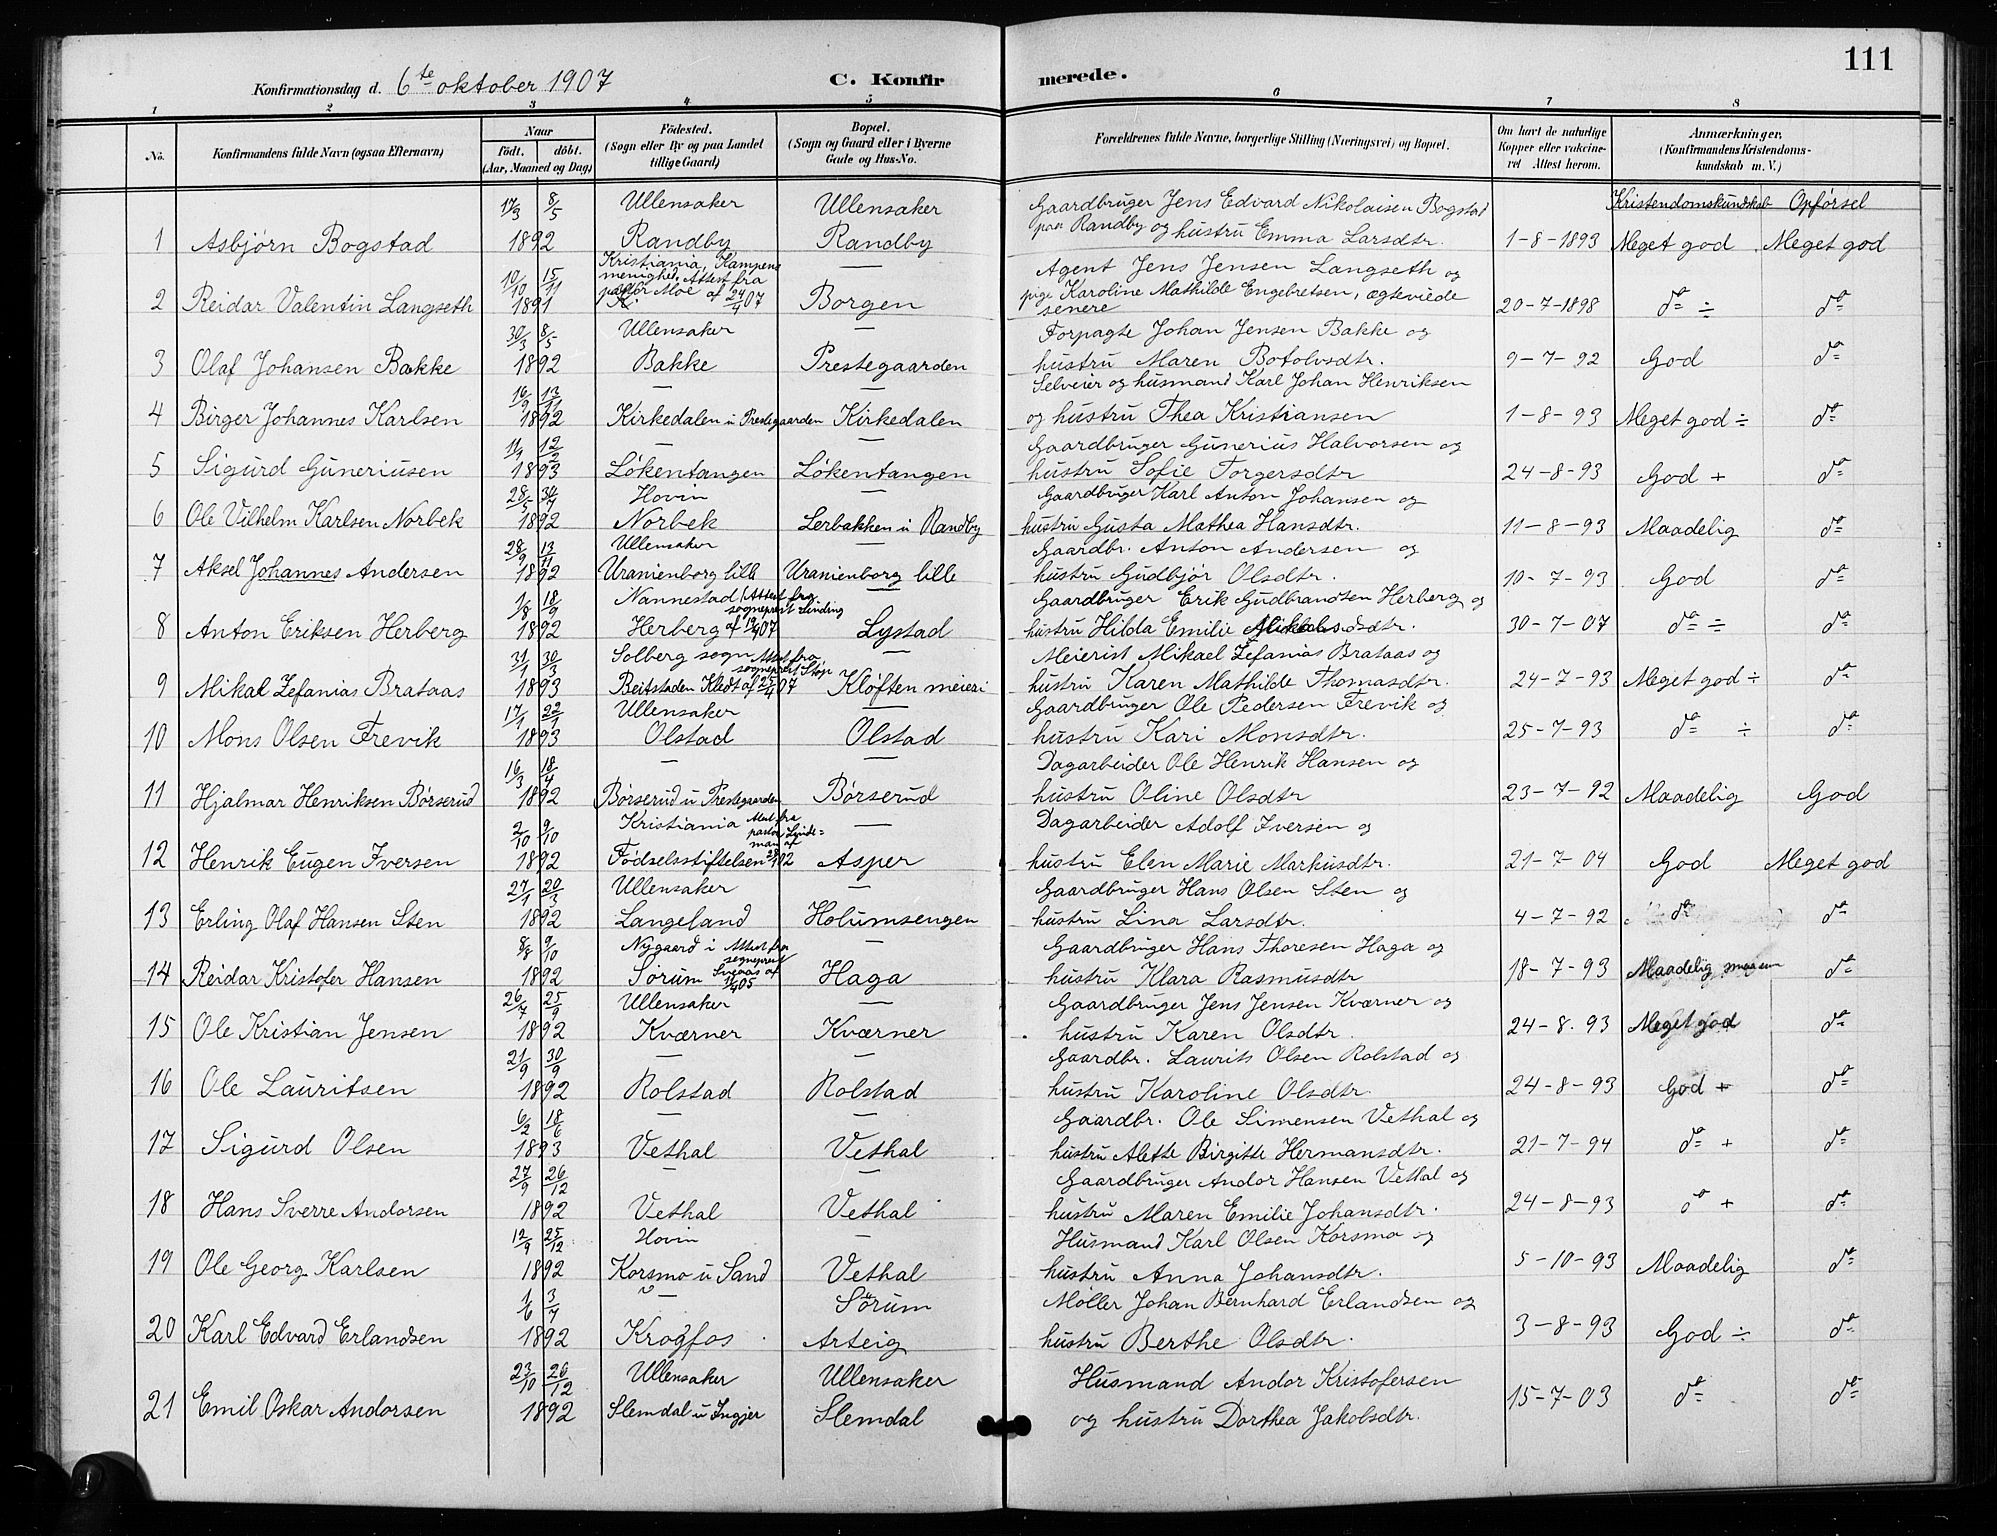 111
Konfirmationsdag d. 6te oktober 1907
C. Konfirmerede.
1 2 3 4 5 6 7 8
No. Konfirmandens fulde Navn (ogsaa Efternavn) Naar Födt. döbt. (Aar, Maaned og Dag) Födested. (Sogn eller By og paa Landet tillige Gaard) Bopæl. (Sogn og Gaard eller i Byerne Gade og Hus-No. Forældrenes fulde Navne, borgerlige Stilling (Næringsvei) og Bopæl. Om havt de naturlige Kopper eller vaccineret Attest herom. Anmærkninger, (Konfirmandens Kristendomskundskab m. V.)
Kristendomskundskab Opførsel
17/3 8/5 Ullensaker Ullensaker Gaardbruger Jens Edvard Nikolaisen Bogstad
1 Asbjørn Bogstad 1892 Randby Randby paa Randby og hustru Emma Larsdtr. 1-8-1893 Meget god Meget god
10/10 15/11 Kristiania, Kampens menighed. Attest fra — Agent Jens Jensen Langseth og
2 Reidar Valentin Langseth 1891 pastor Moe af 24/4 07 Borgen pige Karoline Mathilde Engebretsen, ægteviede senere 20-7-1898 do ÷ do
30/3 8/5 Ullensaker — Forpagte Johan Jensen Bakke og
3 Olaf Johansen Bakke 1892 Bakke Prestegaarden hustru Maren Botolvsdtr. 9-7-92 God do
16/9 13/11 — — Selveier og husmand Karl Johan Henriksen
4 Birger Johannes Karlsen 1892 Kirkedalen u Prestegaarden Kirkedalen og hustru Thea Kristiansen 1-8-93 Meget god ÷ do
11/9 12/2 — — Gaardbruger Gunerius Halvorsen og
5 Sigurd Guneriusen 1893 Løkentangen Løkentangen hustru Sofie Torgersdtr 24-8-93 God + do
28/5 30/7 Hovin — Gaardbruger Karl Anton Johansen og
6 Ole Vilhelm Karlsen Norbek 1892 Norbek Lerbakken u Randby hustru Gusta Mathea Hansdtr. 11-8-93 Maadelig do
28/9 13/11 Ullensaker — Gaardbr. Anton Andersen og
7 Aksel Johannes Andersen 1892 Uranienborg lille Uranienborg lille hustru Gudbjør Olsdtr. 10-7-93 God do
1/8 18/9 Nannestad (Attest fra sogneprest Linding — Gaardbruger Erik Gudbrandsen Herberg og
8 Anton Eriksen Herberg 1892 Herberg af 19/4 07 Lystad hustru Hilda Emilie 30-7-07 do ÷ do
31/1 30/3 Solberg sogn Attest fra sogneprest Støp — Meierist Mikael Zefanias Brataas og
9 Mikal Zefanias Brataas 1893 Beitstaden Kledt af 25/4 07 Kløften meieri hustru Karen Mathilde Thomasdtr. 24-7-93 Meget god ÷ do
17/1 22/1 Ullensaker — Gaardbruger Ole Pedersen Frevik og
10 Mons Olsen Frevik 1893 Olstad Olstad hustru Kari Monsdtr. 25-7-93 do ÷ do
16/3 18/4 — — Dagarbeider Ole Henrik Hansen og
11 Hjalmar Henriksen Børserud 1892 Børserud u Prestegaarden Børserud hustru Oline Olsdtr 23-7-92 Maadelig God
2/10 9/10 Kristiania Attest fra pastor Lindeman af — Dagarbeider Adolf Iversen og
12 Henrik Eugen Iversen 1892 Fødselsstiftelsen 02 Asper hustru Elen Marie Markusdtr. 21-7-04 God Meget god
27/1 20/3 Ullensaker — Gaardbruger Hans Olsen Sten og
13 Erling Olaf Hansen Sten 1892 Langeland Holumsengen hustru Lina Larsdtr. 4-7-92 do do
8/8 9/10 Nygaard i Attest fra sogneprest — Gaardbruger Hans Thoresen Haga og
14 Reidar Kristofer Hansen 1892 Sørum Sveaas af 05 Haga hustru Klara Rasmusdtr 18-7-93 Maadelig do
26/7 25/9 Ullensaker — Gaardbruger Jens Jensen Kværner og
15 Ole Kristian Jensen 1892 Kværner Kværner hustru Karen Olsdtr 24-8.93 Meget god do
21/9 30/9 — — Gaardbr. Laurits Olsen Rolstad og
16 Ole Lauritsen 1892 Rolstad Rolstad hustru Karoline Olsdtr. 24-8-93 God + do
6/2 18/6 — — Gaardbr. Ole Simensen Vethal og
17 Sigurd Olsen 1893 Vethal Vethal hustru Alette Birgitte Hermansdtr. 21-7-94 do + do
27/9 26/12 — — Gaardbruger Andor Hansen Vethal og
18 Hans Sverre Andorsen 1892 Vethal Vethal hustru Maren Emilie Johansdtr. 24-8-93 do + do
12/9 25/12 Hovin — Husmand Karl Olsen Korsmo og
19 Ole Georg Karlsen 1892 Korsmo u Sand Vethal hustru Anna Johansdtr. 5-10-93 Maadelig do
1/6 3/7 — Sørum Møller Johan Bernhard Erlandsen og
20 Karl Edvard Erlandsen 1892 Krogfos Arteig hustru Berthe Olsdtr. 3-8-93 God ÷ do
23/10 26/12 Ullensaker Ullensaker Husmand Andor Kristofersen
21 Emil Oskar Andorsen 1892 Slemdal u Ingjer Slemdal og hustru Dorthea Jakobsdtr. 15-7-03 do do